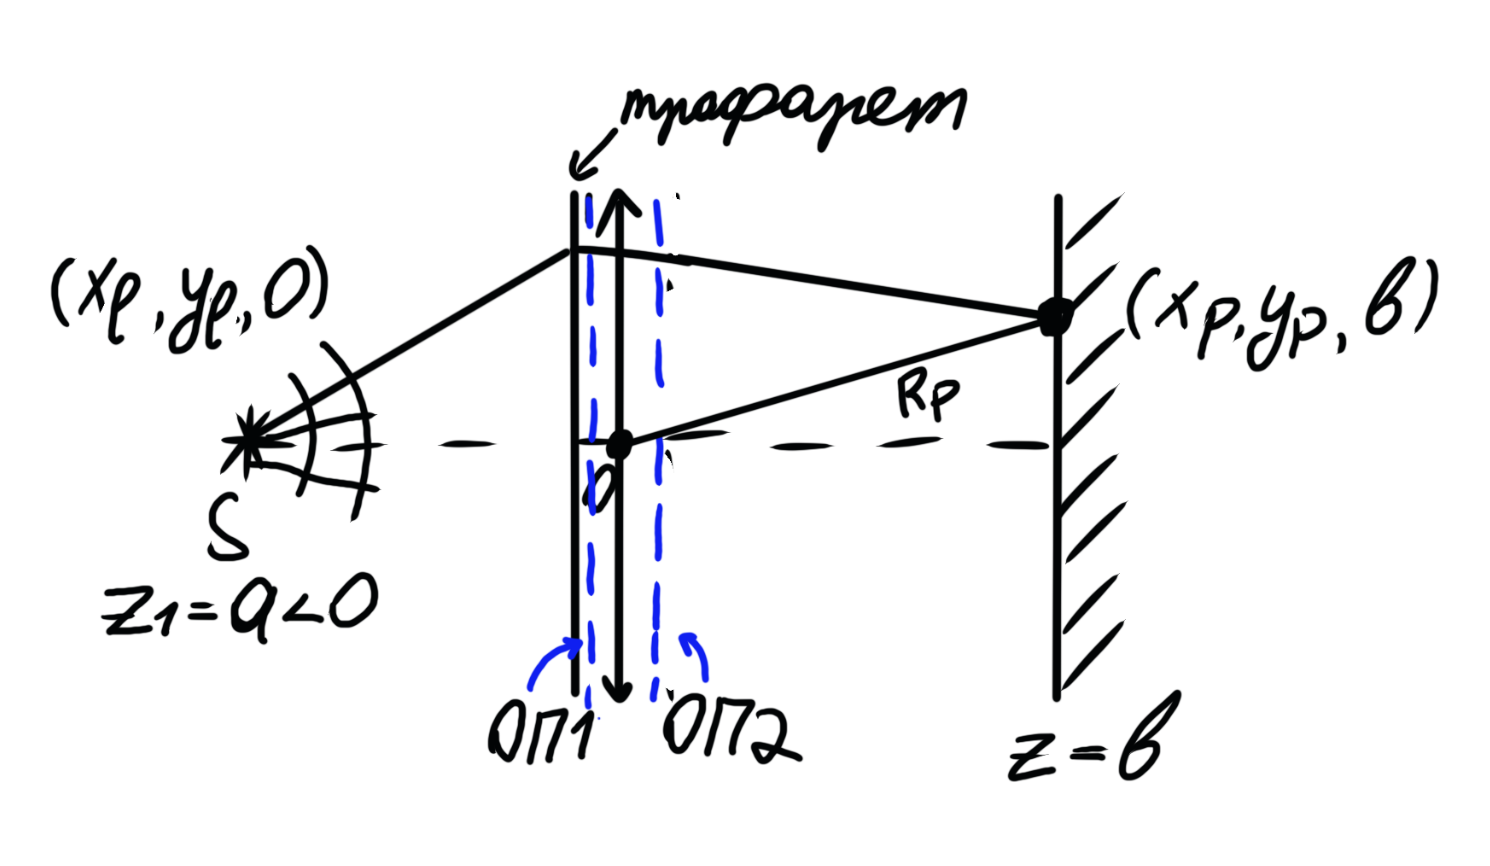 трафарет
(xρ, yρ, 0)
(xp, yp, b)
Rp
0
S
z₁=a<0
ОП1
ОП2
z=b